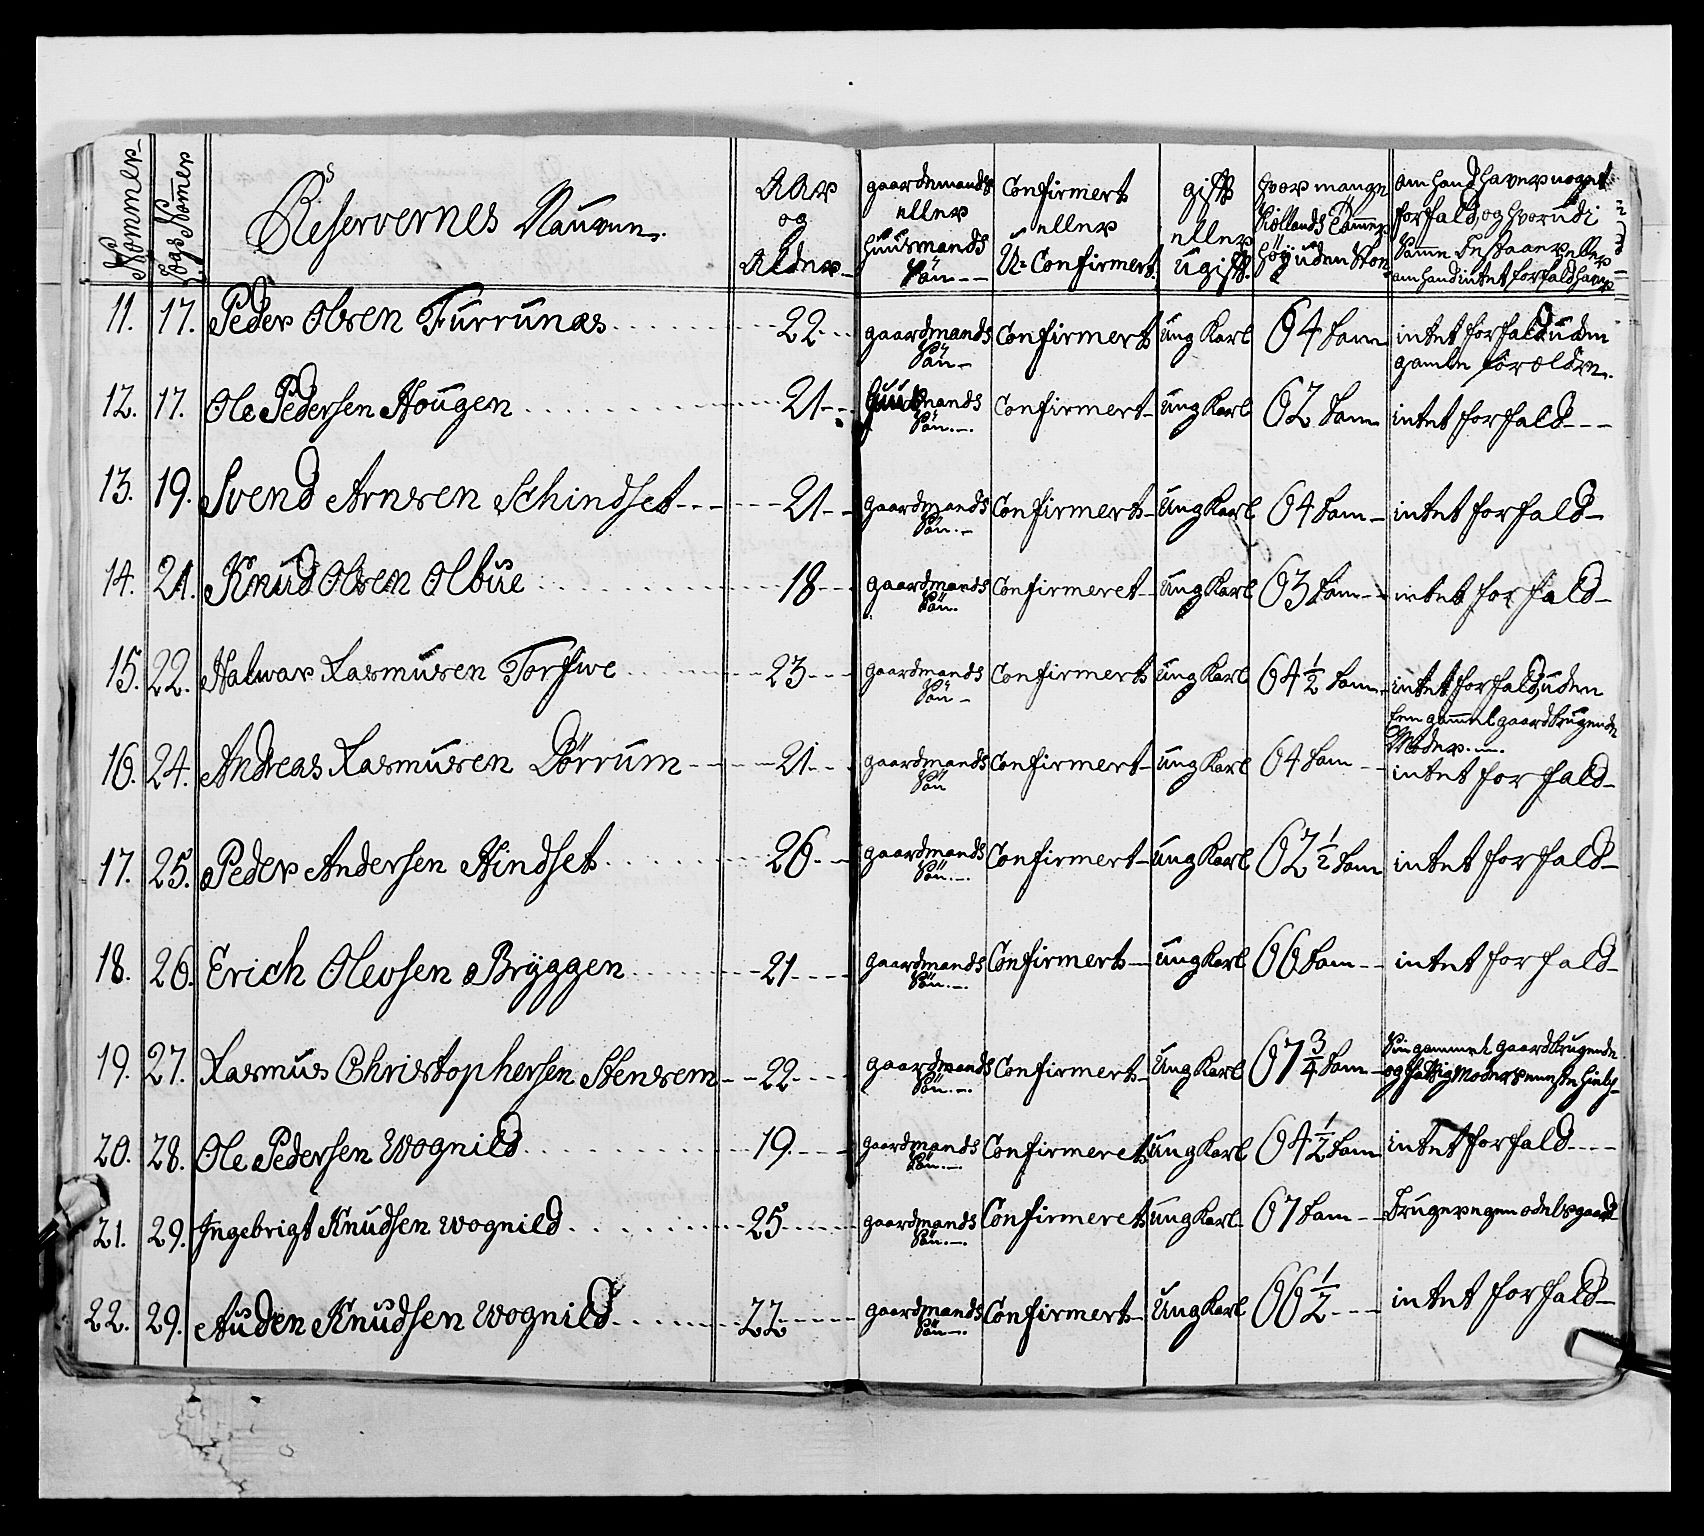 Nommer Lægs Nomer Reservernes Naune. Aar og Alder gaardemands eller huusmands Sön Confirmert eller U=Confirmert. gift eller ugift hvor mange Hollands Tommer Höy uden Skoe om hand haver noget forfald, og hvorudi Samme bestaaer, eller om hand intet forfald haver
11. 17. Peder Olsen Furrunæs 22 gaardmands Sön Confirmert Ung Karl 64 tom intet forfald uden gamle forældre.
12. 17. Ole Pedersen Hougen 21 huusmands Sön Confirmert Ung Karl 62 tom intet forfald
13. 19. Svend Arnsen Schindset 21 gaardmands Sön Confirmert Ung Karl 64 tom intet forfald
14. 21. Knud Olsen Olbue 18 gaardmands Sön Confirmeret Ung Karl 63 tom intet forfald
15. 22. Halwar Rasmusen Torfwe 23 gaardmands Sön Confirmert Ung Karl 64 1/2 tom intet forfald uden Een gammel gaardbrugende Moder
16. 24. Andreas Rasmusen Dörrum 21 gaardmands Sön Confirmert Ung Karl 64 tom intet forfald
17. 25. Peder Andersen Hindset 26 gaardmands Sön Confirmert Ung Karl 62 1/2 tom intet forfald
18. 26. Erich Olevsen Brÿggen 21 gaardmands Sön Confirmert Ung Karl 66 tom intet forfald
19. 27. Rasmus Christophersen Stensem 22 gaardmands Sön Confirmert Ung Karl 67 3/4 tom Sin gammel gaardbrugende og fattig Moders eneste hielp
20. 28. Ole Pedersen Wognild 19. gaardmands Sön Confirmeret Ung Karl 64 1/2 tom intet forfald
21. 29. Ingebrigt Knudsen Wognild 25 gaardmands Sön Confirmeret Ung Karl 67 tom Bruger egen odels gaard
22. 29. Auden Knudsen Wognild 22 gaardmands Sön Confirmert Ung Karl 66 1/2 intet forfald